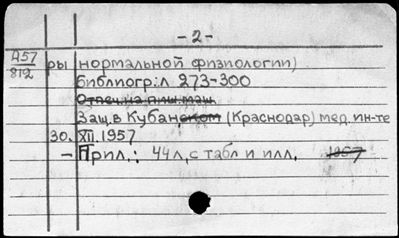 - 2 -
А57
812
ры нормальной физиологии)
библиогр: л 273-300
Отпеч. на пиш. маш.
Защ. в Кубанском (Краснодар) мед. ин-те
30. XII. 1957
- Прил.: 44 л, с табл и илл. 1957